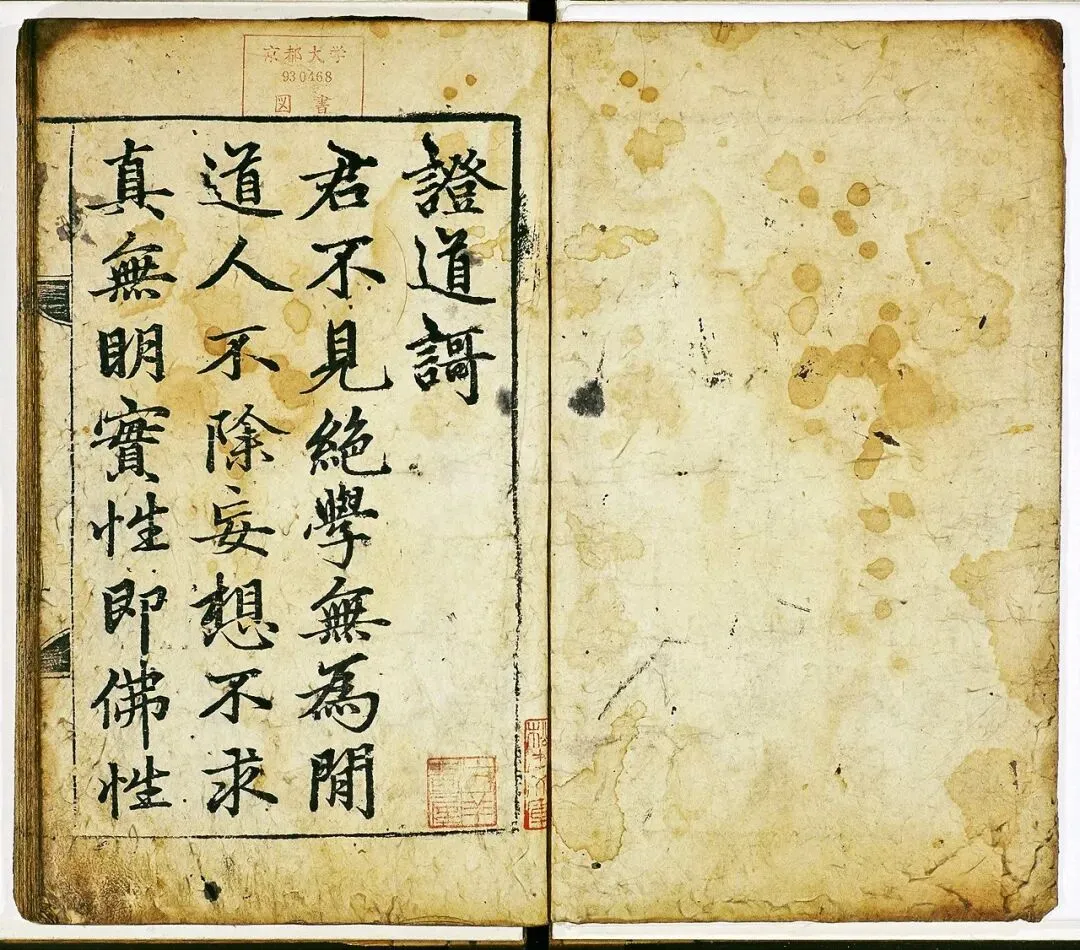 京都大学
930468
図書
證道謌
君不見絶學無為閒
道人不除妄想不求
真無明實性即佛性